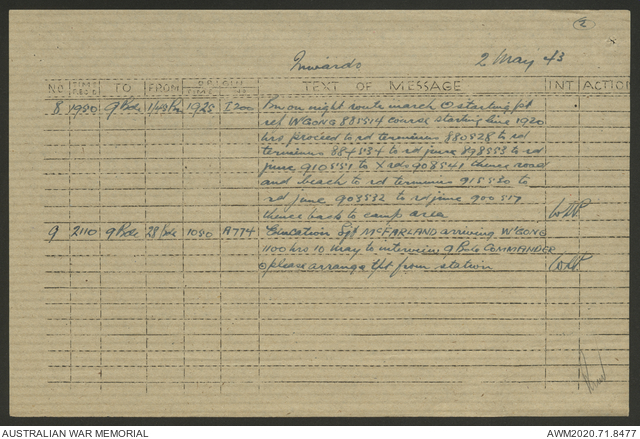 2
Inwards 2 May 43
NO TIME REC'D TO FROM ORIGIN TIME NO TEXT OF MESSAGE INT ACTION
8 1930 9 Bde 1925 I200 on night route march starting pt
ref W'GONG 835514 course starting line 1920
hrs proceed to rd terminus 880528 to rd
terminus 884534 to rd junc 898553 to rd
junc 910551 to X rds 908541 thence road
and beach to rd terminus 915530 to
rd junc 903532 to rd junc 900517
thence back to camp area
9 2110 9 Bde A774 Education Sgt McFARLAND arriving W'GONG
1100 hrs 10 May to interview 9 Bde COMMANDER
please arrange tpt from station
AUSTRALIAN WAR MEMORIAL AWM2020.71.8477